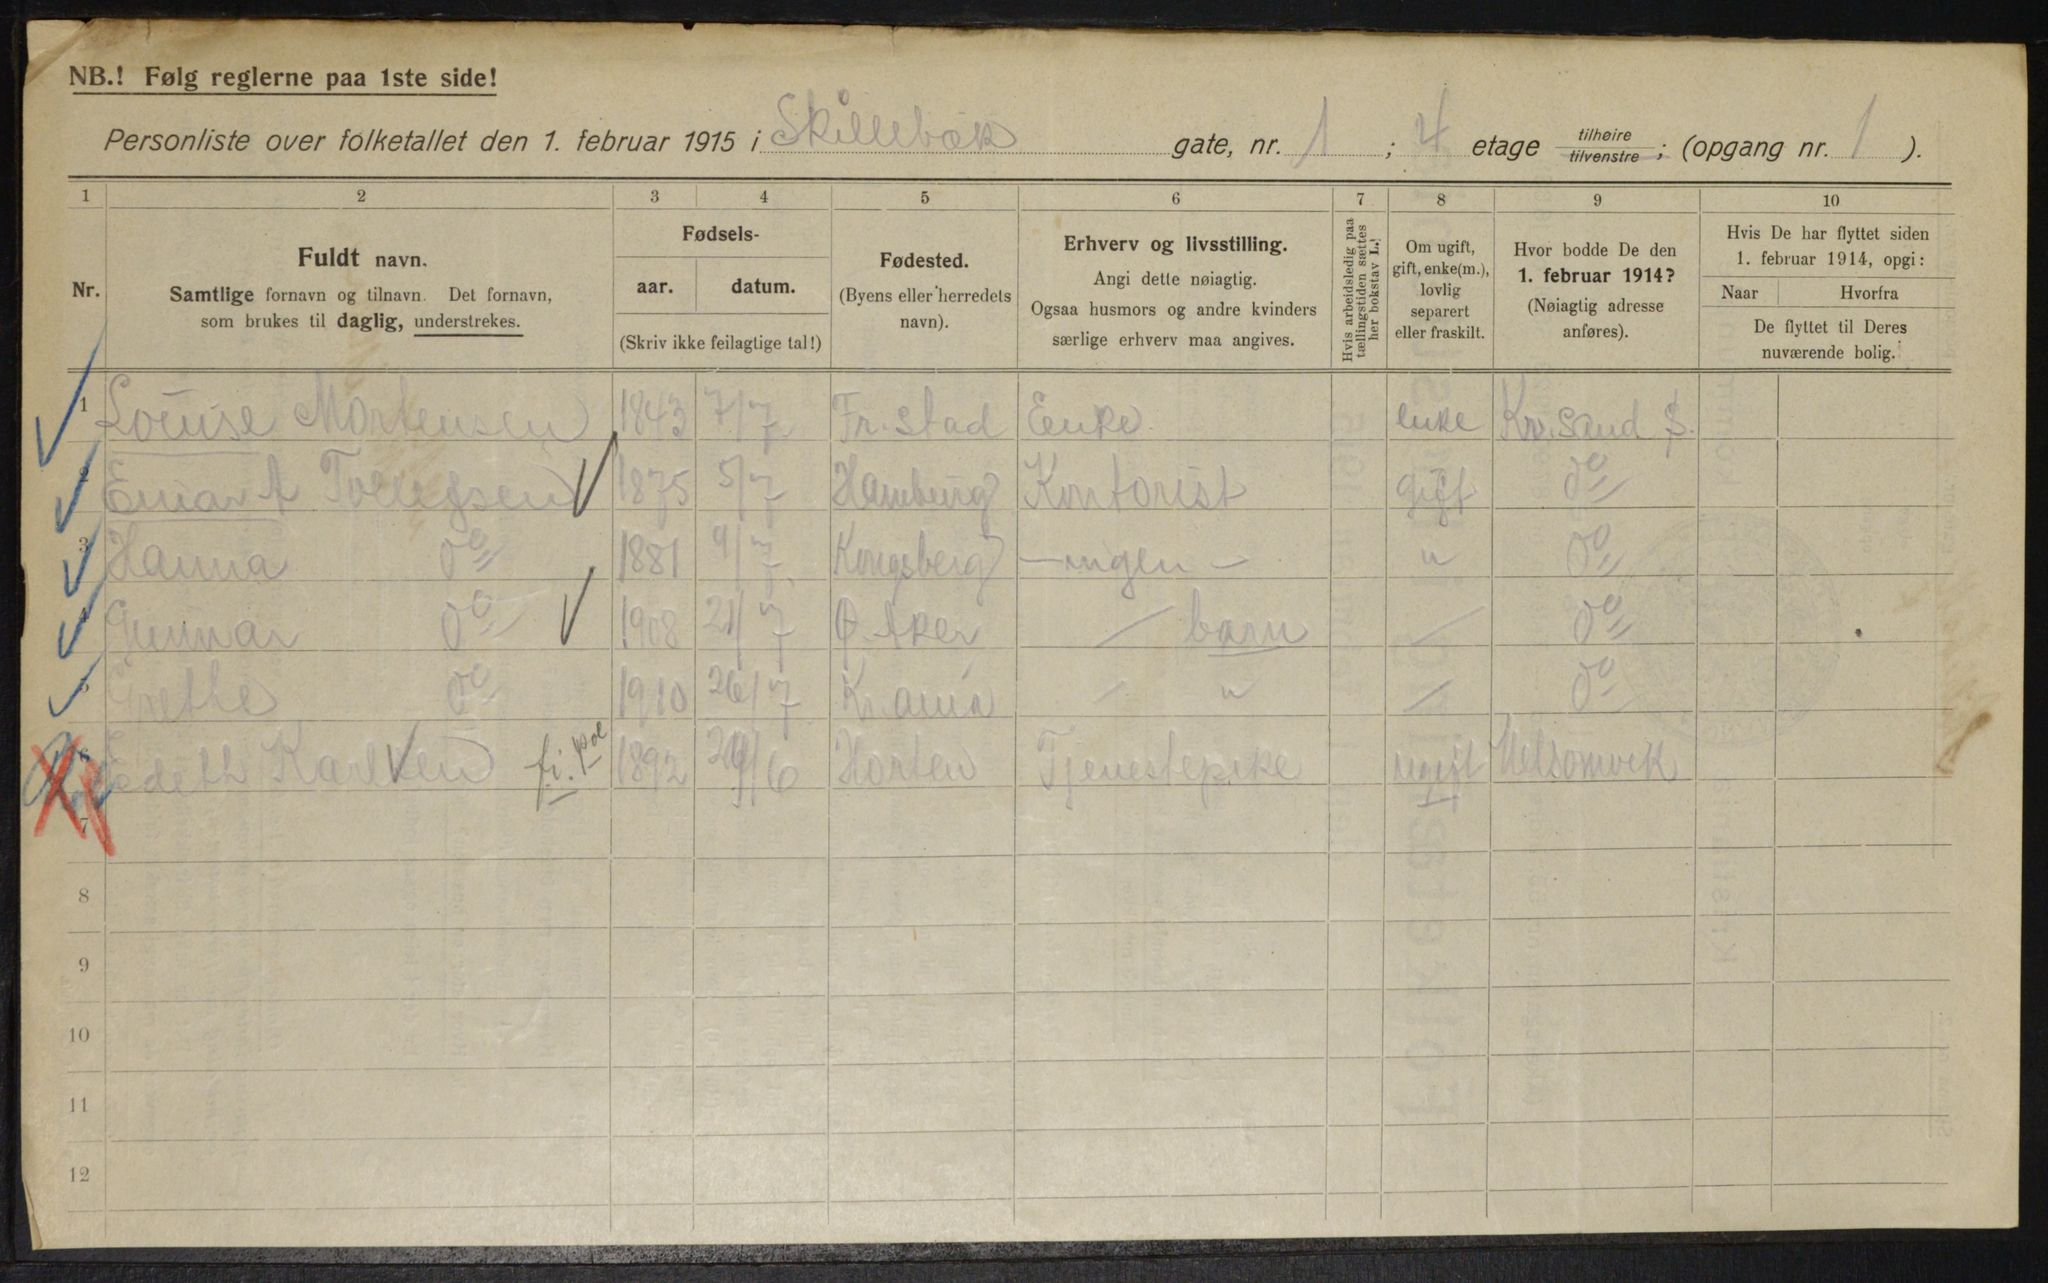 NB.! Følg reglerne paa 1ste side!
Personliste over folketallet den 1. februar 1915 i Skillebæk gate, nr. 1 ; 4 etage tilhøire tilvenstre ; (opgang nr. 1 ).
1 2 3 4 5 6 7 8 9 10
Nr.
Fuldt navn.
Samtlige fornavn og tilnavn. Det fornavn,
som brukes til daglig, understrekes.
Fødsels-
aar. datum.
(Skriv ikke feilagtige tal!)
Fødested.
(Byens eller herredets
navn).
Erhverv og livsstilling.
Angi dette nøiagtig.
Ogsaa husmors og andre kvinders
særlige erhverv maa angives.
Hvis arbeidsledig paa
tællingstiden sættes
her bokstav L.!
Om ugift,
gift, enke(m.),
lovlig
separert
eller fraskilt.
Hvor bodde De den
1. februar 1914?
(Nøiagtig adresse
anføres).
Hvis De har flyttet siden
1. februar 1914, opgi:
Naar Hvorfra
De flyttet til Deres
nuværende bolig.
1 Louise Mortensen 1843 7/7 Fr.stad Enke enke Kr.sand S.
2 Einar A Tollefsen 1875 5/7 Hamburg Kontorist gift do
3 Hanna do 1881 9/7 Kongsberg - ingen - " do
4 Gunnar do 1908 21/7 Ø. Aker / barn / do
5 Grethe do 1910 26/7 Kr.ania / " / do
6 Karlsen fi. pol 1892 /6 Horten Tjenestepike ugift Melsomvik
7
8
9
10
11
12